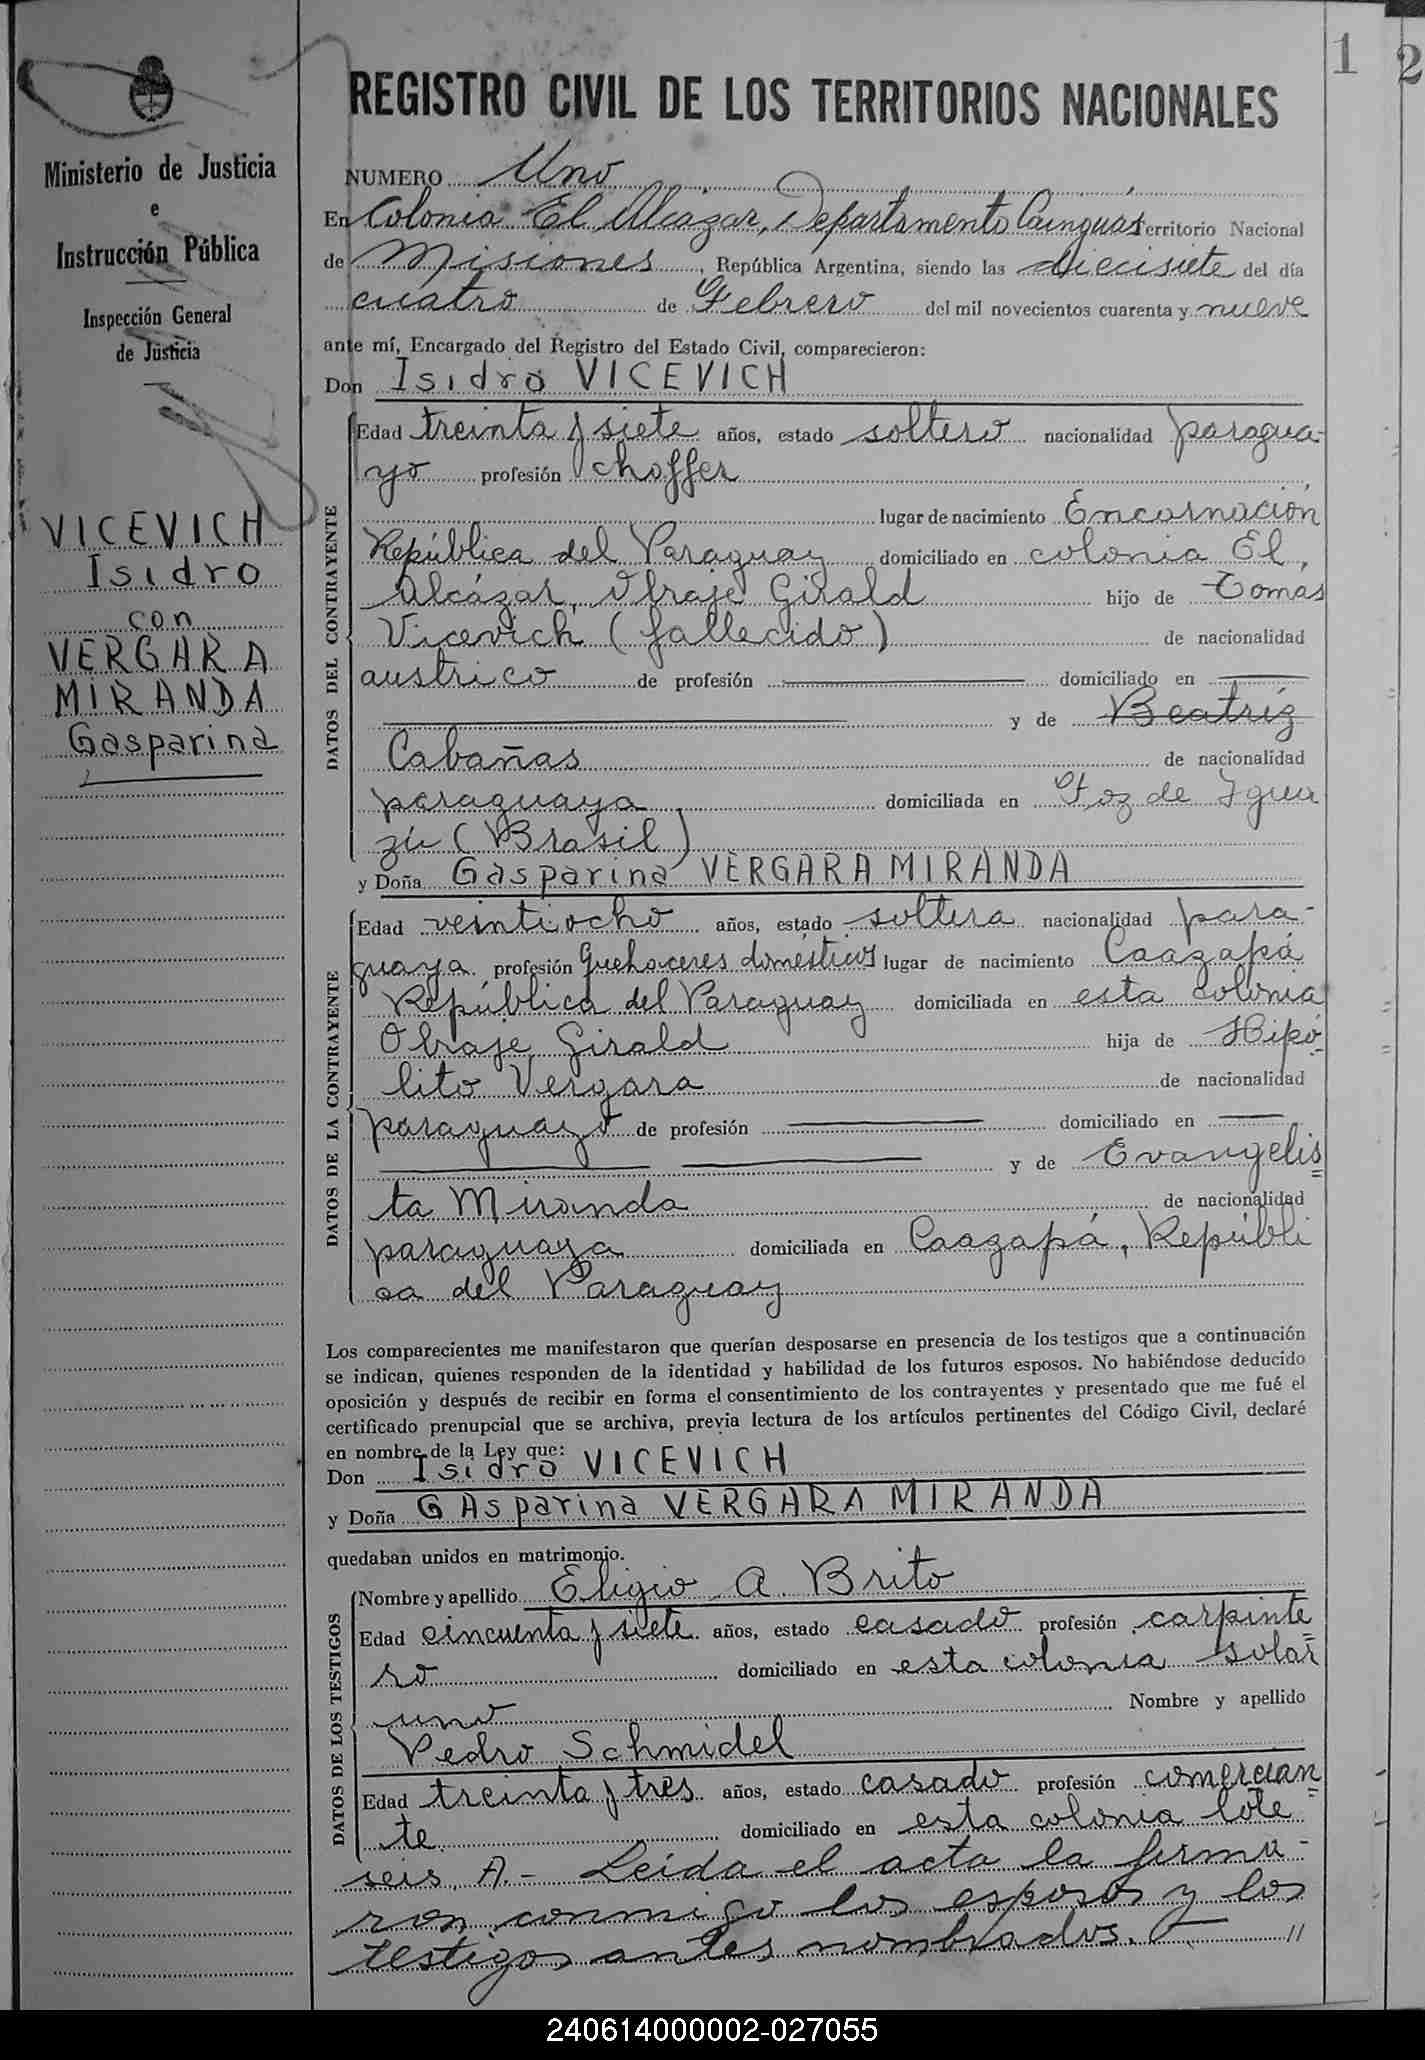 1
2
REGISTRO CIVIL DE LOS TERRITORIOS NACIONALES
Ministerio de Justicia
e
Instrucción Pública
Inspección General
de Justicia
VICEVICH
Isidro
con
VERGARA
MIRANDA
Gasparina
NUMERO Uno
En Colonia El Alcázar, Departamento Cainguás Territorio Nacional
de Misiones, República Argentina, siendo las diecisiete del día
cuatro de Febrero del mil novecientos cuarenta y nueve
ante mí, Encargado del Registro del Estado Civil, comparecieron:
Don Isidro VICEVICH
DATOS DEL CONTRAYENTE
Edad treinta y siete años, estado soltero nacionalidad paragua-
yo profesión choffer
lugar de nacimiento Encarnación
República del Paraguay domiciliado en colonia El
Alcázar, Obraje Girald hijo de Tomás
Vicevich (fallecido) de nacionalidad
austrico de profesión domiciliado en
y de Beatríz
Cabañas de nacionalidad
paraguaya domiciliada en Foz de Igua
zú (Brasil)
y Doña Gasparina VERGARA MIRANDA
DATOS DE LA CONTRAYENTE
Edad veintiocho años, estado soltera nacionalidad para-
guaya profesión Quehaceres domésticos lugar de nacimiento Caazapá
República del Paraguay domiciliada en esta colonia
Obraje Girald hija de Hipó
lito Vergara de nacionalidad
paraguayo de profesión domiciliado en
y de Evangelis
ta Miranda de nacionalidad
paraguaya domiciliada en Caazapá, Repúbli
ca del Paraguay
Los comparecientes me manifestaron que querían desposarse en presencia de los testigos que a continuación
se indican, quienes responden de la identidad y habilidad de los futuros esposos. No habiéndose deducido
oposición y después de recibir en forma el consentimiento de los contrayentes y presentado que me fué el
certificado prenupcial que se archiva, previa lectura de los artículos pertinentes del Código Civil, declaré
en nombre de la Ley que:
Don Isidro VICEVICH
y Doña GAsparina VERGARA MIRANDA
quedaban unidos en matrimonio.
DATOS DE LOS TESTIGOS
Nombre y apellido Eligio A. Brito
Edad cincuenta y siete años, estado casado profesión carpinte
ro domiciliado en esta colonia solar
uno Nombre y apellido
Pedro Schmidel
Edad treinta y tres años, estado casado profesión comercian
te domiciliado en esta colonia lote
seis A.- Leída el acta la firma-
ron conmigo los esposos y los
testigos antes nombrados. //
240614000002-027055